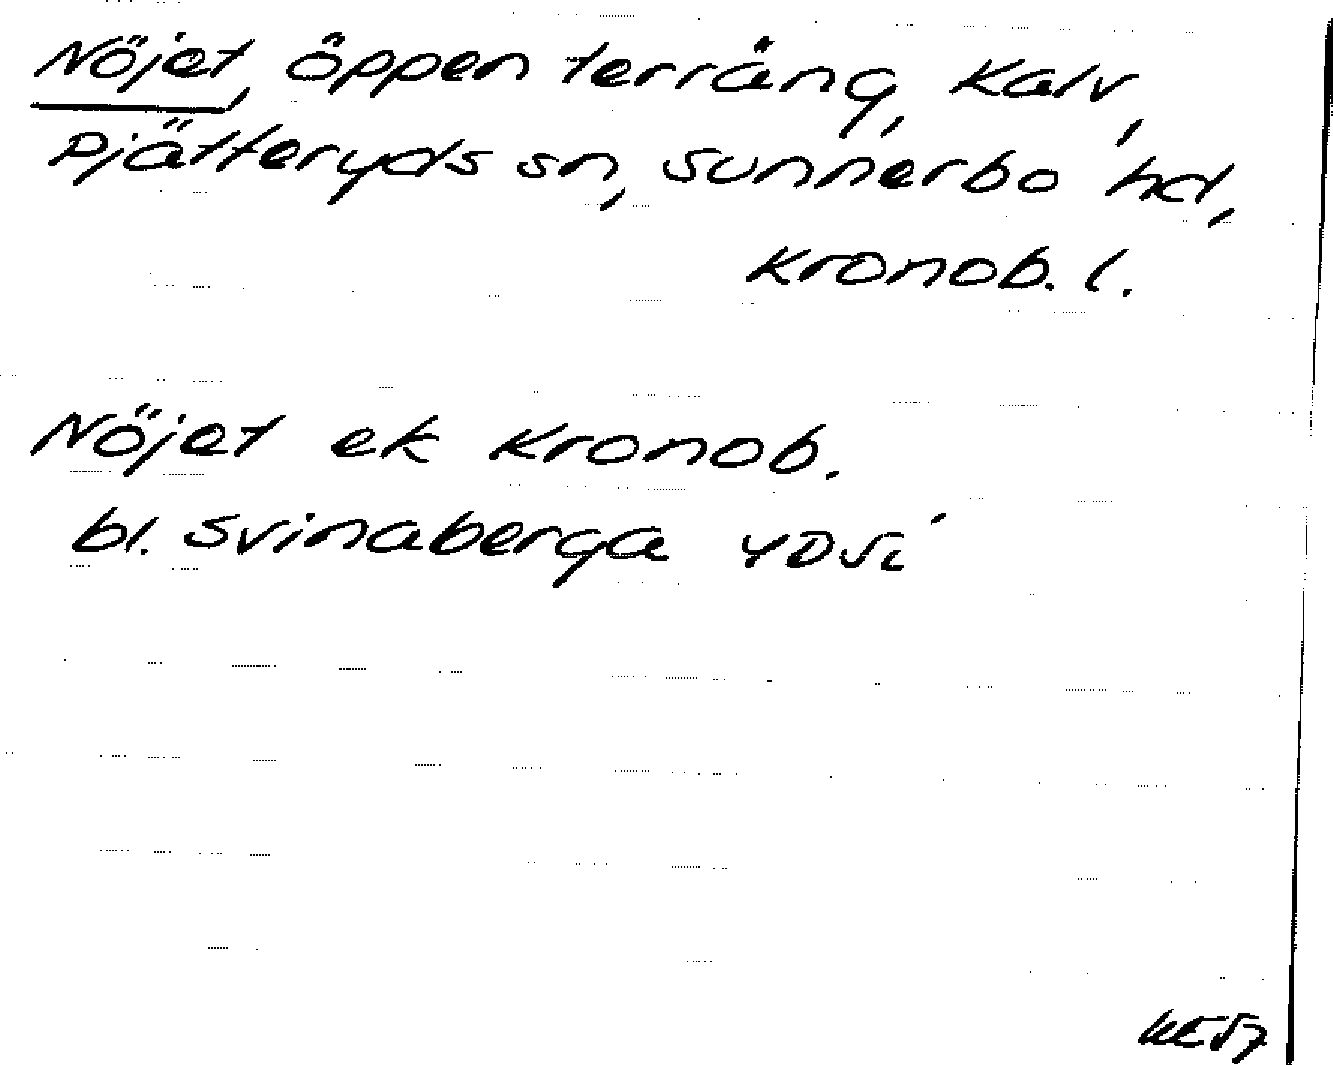 Nöjet, öppen terräng, Kalv,
Pjätteryds sn, Sunnerbo hd,
Kronob. l.
Nöjet ek Kronob.
bl. Svinaberga